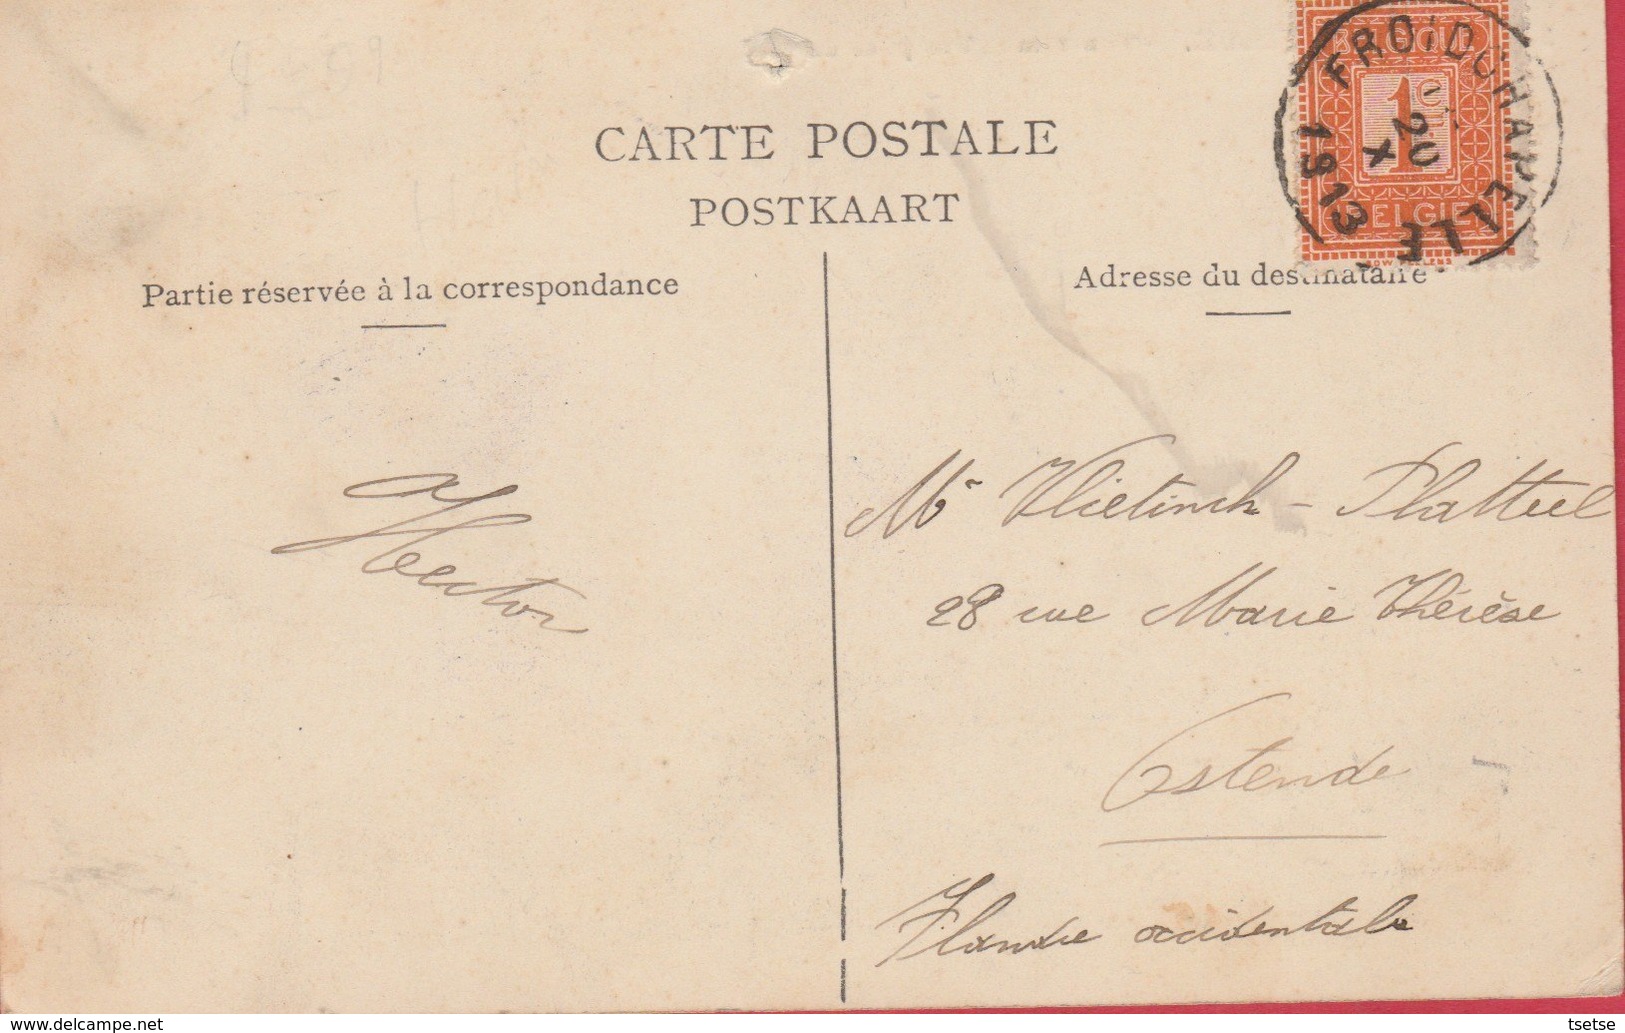 CARTE POSTALE
POSTKAART
Partie réservée à la correspondance
Adresse du destinataire
BELGIQUE
1c
BELGIË
FROIDCHAPELLE
20
X
1913
Hector
Mr Vlietinck - Platteel
28 rue Marie Thérèse
Ostende
Flandre occidentale
tsetse